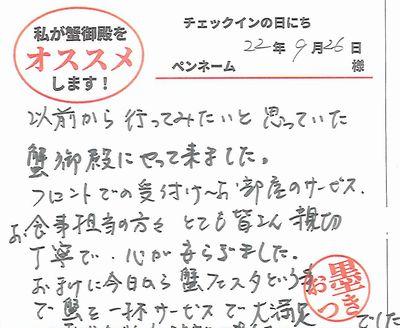 私が蟹御殿を
オススメ
します！
チェックインの日にち
22年9月26日
ペンネーム
様
以前から行ってみたいと思っていた
蟹御殿にやって来ました。
フロントでの受付〜お部屋のサービス、
お食事担当の方々とても皆さん親切
丁寧で、心が安らぎました。
おまけに今日から蟹フェスタという事
で蟹を一杯サービスで大満足でした
墨
おつき